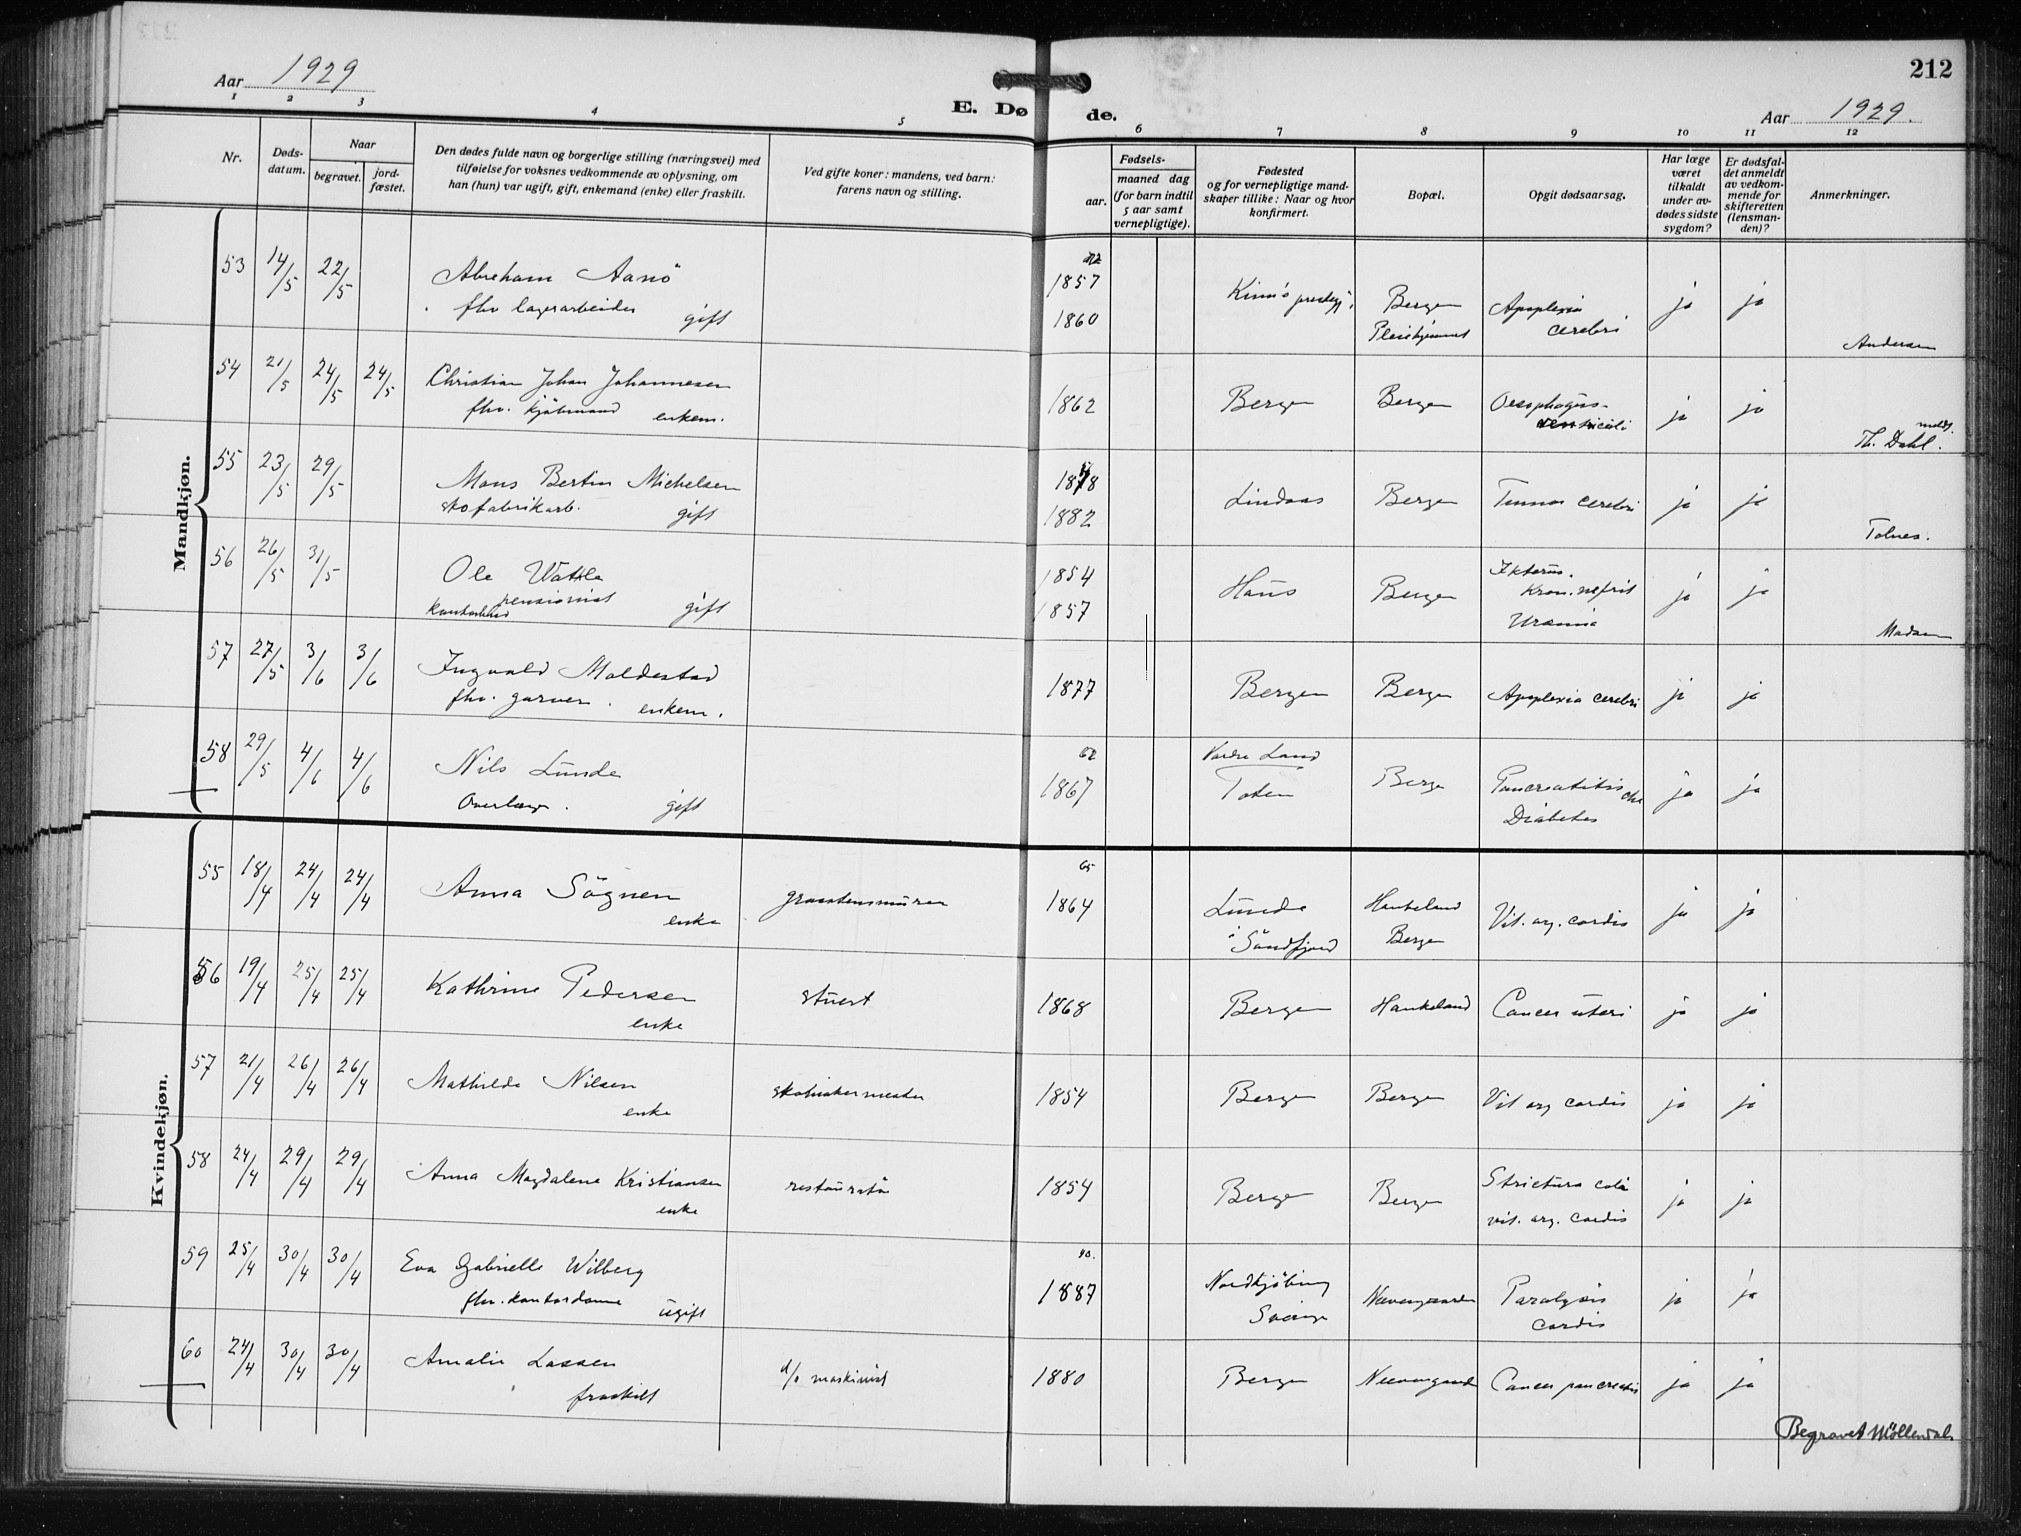 Aar 1929
E. Dø de.
Aar 1929.
212
1 2 3 4 5 6 7 8 9 10 11 12
Nr.
Døds-
datum.
Naar
begravet.
jord-
fæstet.
Den dødes fulde navn og borgerlige stilling (næringsvei) med
tilføielse for voksnes vedkommende av oplysning, om
han (hun) var ugift, gift, enkemand (enke) eller fraskilt.
Ved gifte koner: mandens, ved barn:
farens navn og stilling.
Fødsels-
aar.
maaned dag
(for barn indtil
5 aar samt
vernepligtige).
Fødested
og for vernepligtige mand-
skaper tillike: Naar og hvor
konfirmert.
Bopæl.
Opgit dødsaarsag.
Har læge
været
tilkaldt
under av-
dødes sidste
sygdom?
Er dødsfal-
det anmeldt
av vedkom-
mende for
skifteretten
(lensman-
den)?
Anmerkninger.
Mandkjøn.
53 14/5 22/5 Abraham Aasnö 1857 Kinn's prestegj. Bergen Apoplexia ja ja
fhv lagerarbeider gift 1860 Pleiehjemmet cerebri Andersen
54 21/5 24/5 24/5 Christian Johan Johannesen 1862 Bergen Bergen Oesophagus- ja ja
fhv. kjöbmand enkem. ventriculi Th. Dahl.
55 23/5 29/5 Mons Bertin Michelsen 1878 Lindaas Bergen Tumor cerebri ja ja
skofabrikarb. gift 1882 Tolnes.
56 26/5 31/5 Ole Wattle 1854 Haus Bergen Ikterus. ja ja
pensionist gift 1857 Kron. nefrit
Uræmia Madsen
57 27/5 3/6 3/6 Ingvald Moldestad 1877 Bergen Bergen Apoplexia cerebri ja ja
fhv. garver. enkem.
58 29/5 4/6 4/6 Nils Lunde 62 1867 Nordre Land Bergen Pancreatitis chr ja ja
Overlæge. gift Toten Diabetes
Kvindekjøn.
55 18/4 24/4 24/4 Anna Sögnen graastensmurer 65 1864 Lunde Haukeland Vit. org. cordis ja ja
enke i Söndfjord Bergen
56 19/4 25/4 25/4 Kathrine Pedersen stuert 1868 Bergen Haukeland Cancer uteri ja ja
enke
57 21/4 26/4 26/4 Mathilde Nilsen skomakermester 1854 Bergen Bergen Vit org cordis ja ja
enke
58 24/4 29/4 29/4 Anna Magdalene Kristiansen restauratör 1854 Bergen Bergen Strictura coli ja ja
enke vit. org. cordis
59 25/4 30/4 30/4 Eva Gabrielle Wilberg 1887 Nordkjöbing Neevengaarden Paralysis ja ja
fhv. kontordame ugift Sverige cordis
60 24/4 30/4 30/4 Amalie Lassen d/o maskinist 1880 Bergen Neevengaarden Cancer pancreatis ja ja
fraskilt
Begravet Möllendal.